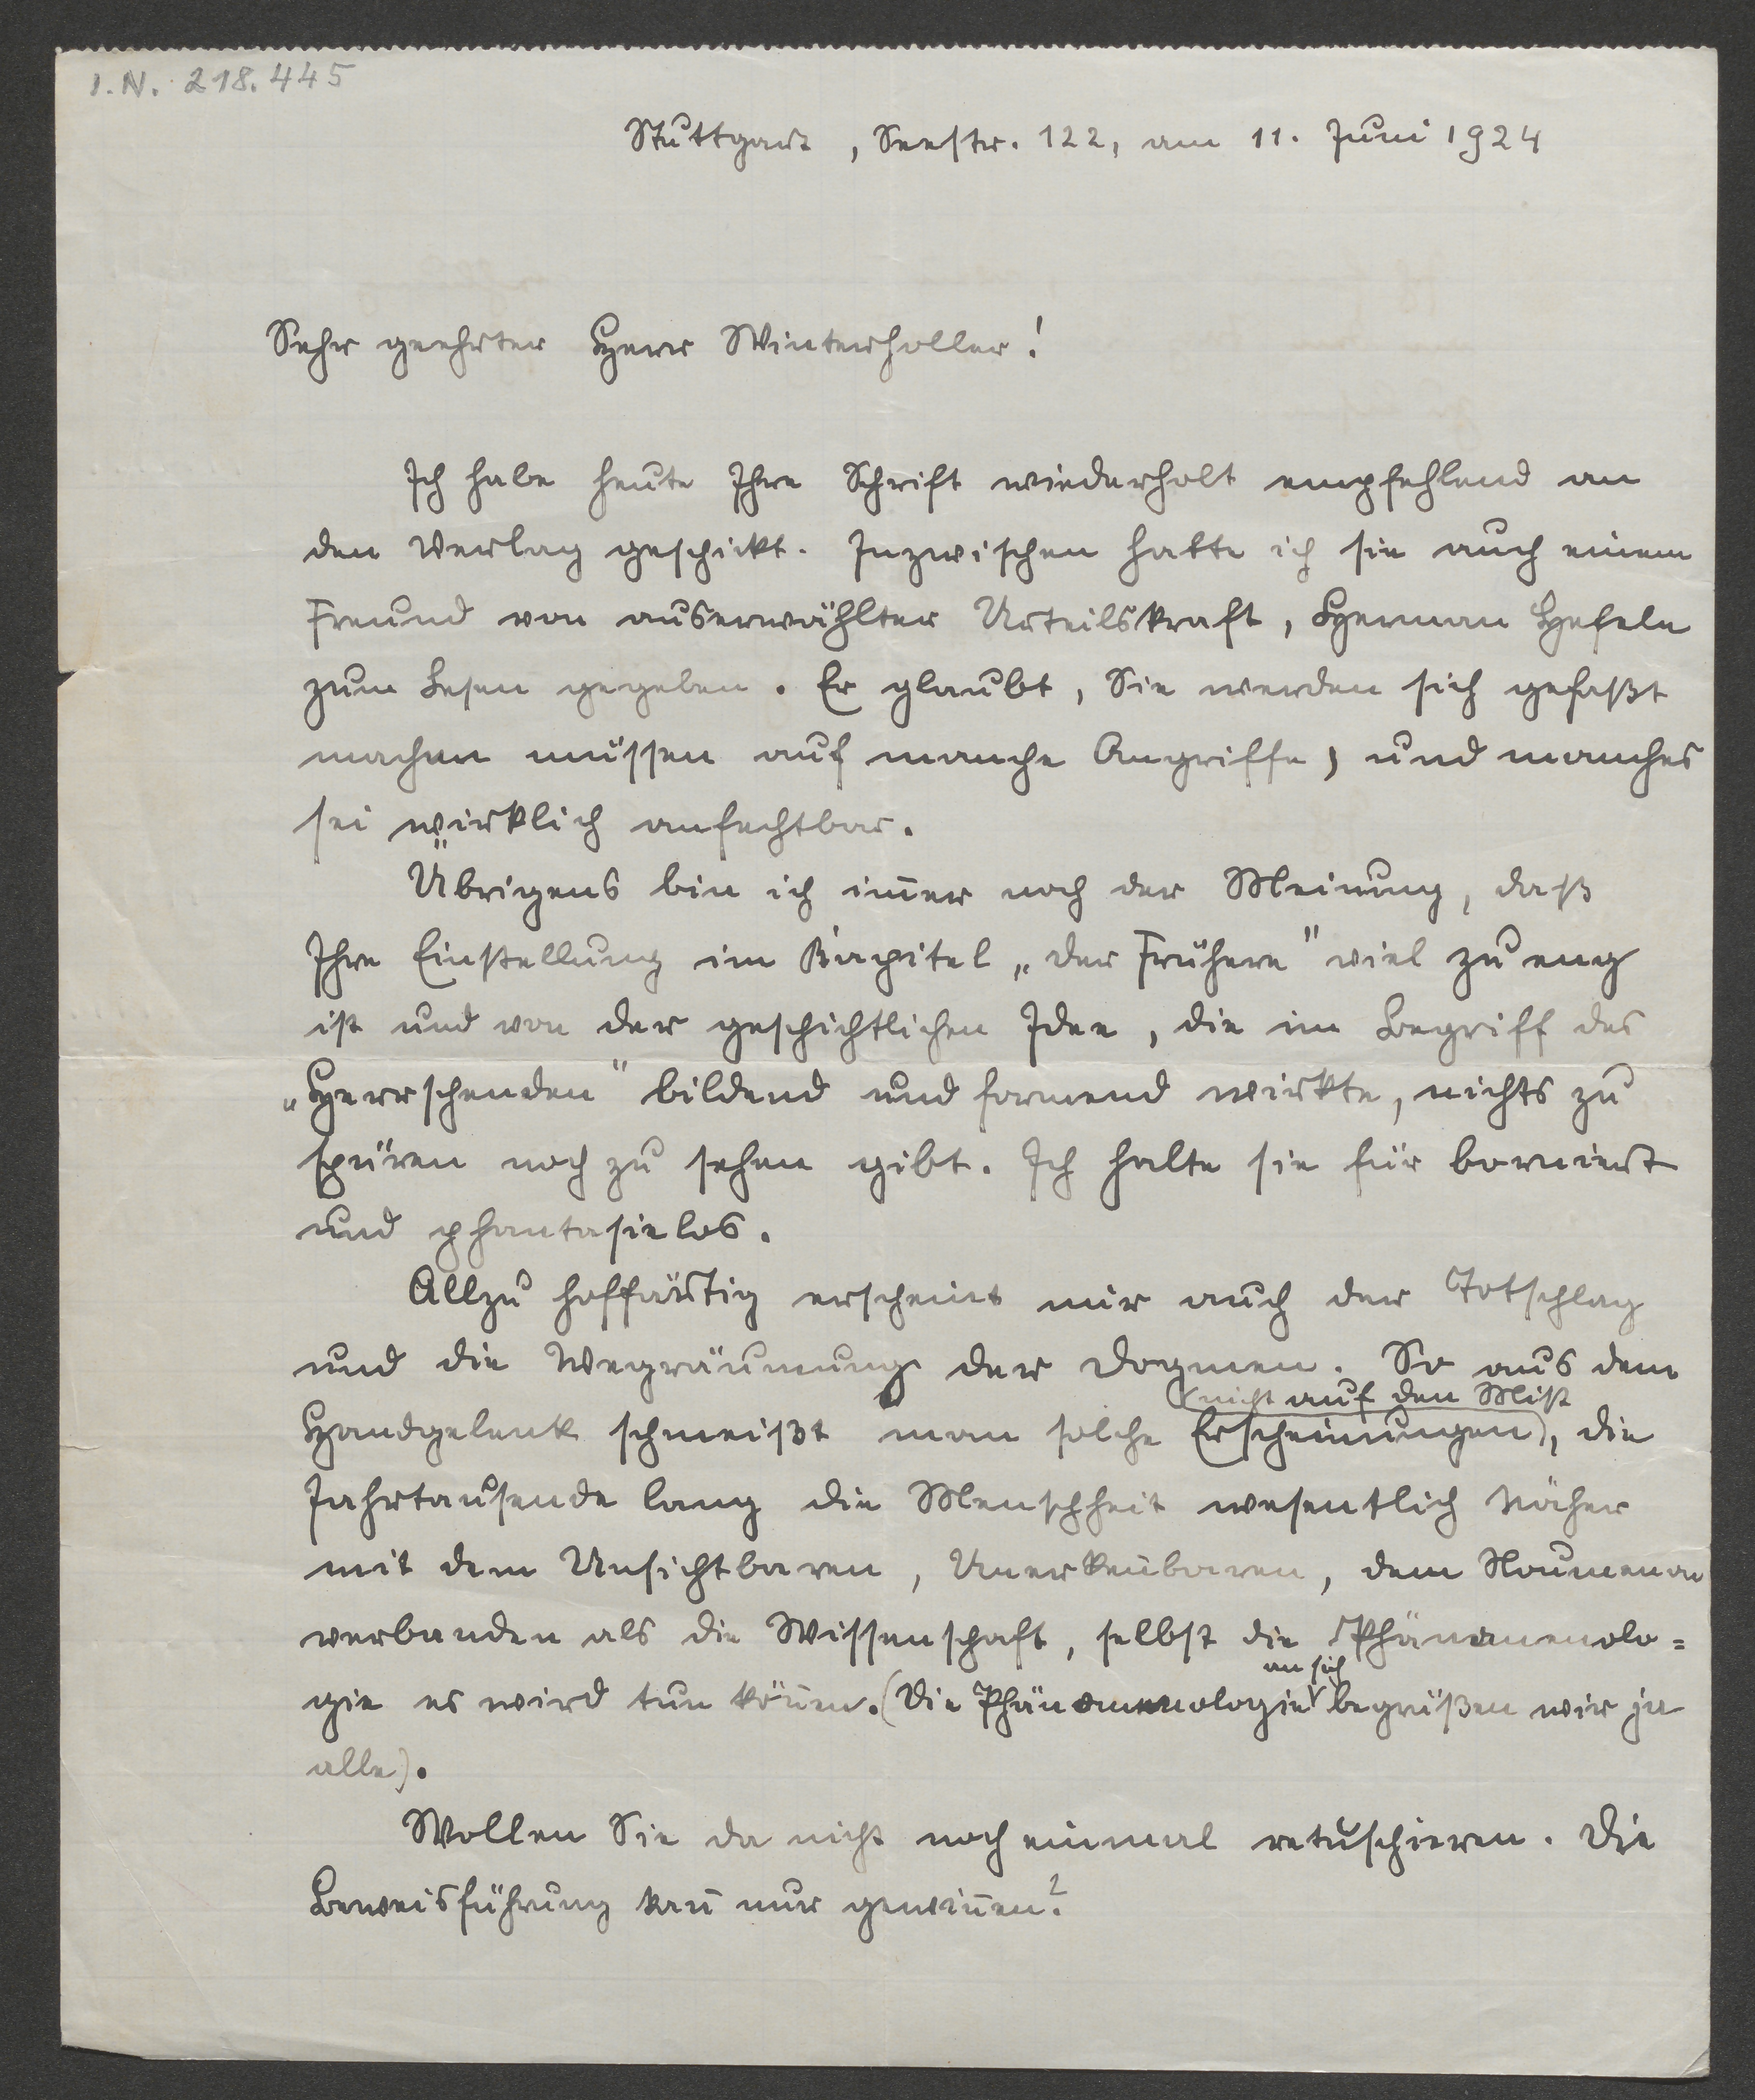 I.N. 218.445
Stuttgart, Seestr. 122, am 11. Juni 1924
Sehr geehrter Herr Winterholler!
Ich habe heute Ihre Schrift wiederholt empfehlend an
den Verlag geschickt. Inzwischen hatte ich sie auch einem
Freund von auserwählter Urteilskraft, Herman Hefele
zum Lesen gegeben. Er glaubt, Sie werden sich gefaßt
machen müssen auf manche Angriffe, und manches
sei wirklich anfechtbar.
Übrigens bin ich im̄er noch der Meinung, daß
Ihre Einstellung im Kapitel „der Frühere" viel zu eng
ist und von der geschichtlichen Idee, die im Begriff des
„Herrschenden" bildend und formend wirkte, nichts zu
spüren noch zu sehen gibt. Ich halte sie für borniert
und phantasielos.
Allzu hoffärtig erscheint mir auch der Totschlag
und die Wegräumung der Dogmen. So aus dem
(nicht auf den Mist
Handgelenk schmeißt man solche Erscheinungen), die
Jahrtausende lang die Menschheit wesentlich näher
mit dem Unsichtbaren, Unerken̄baren, dem Noumenon
verbanden als die Wissenschaft, selbst die Phänomenolo=
an sich
gie es wird tun kön̄en. (Die Phänomenologie begrüßen wir ja
alle).
Wollen Sie da nicht noch einmal retuschieren. Die
Beweisführung kan̄ nur gewin̄en?